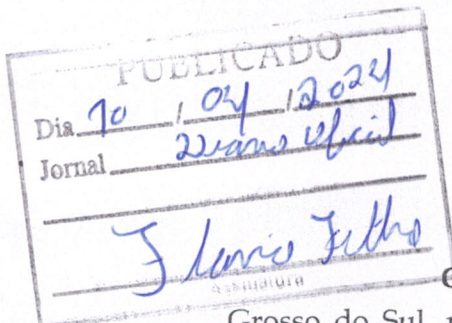 PUBLICADO
Dia 10 / 04 / 2024
Jornal Diario Oficial
Flavio Filho
Assinatura
Grosso do Sul,